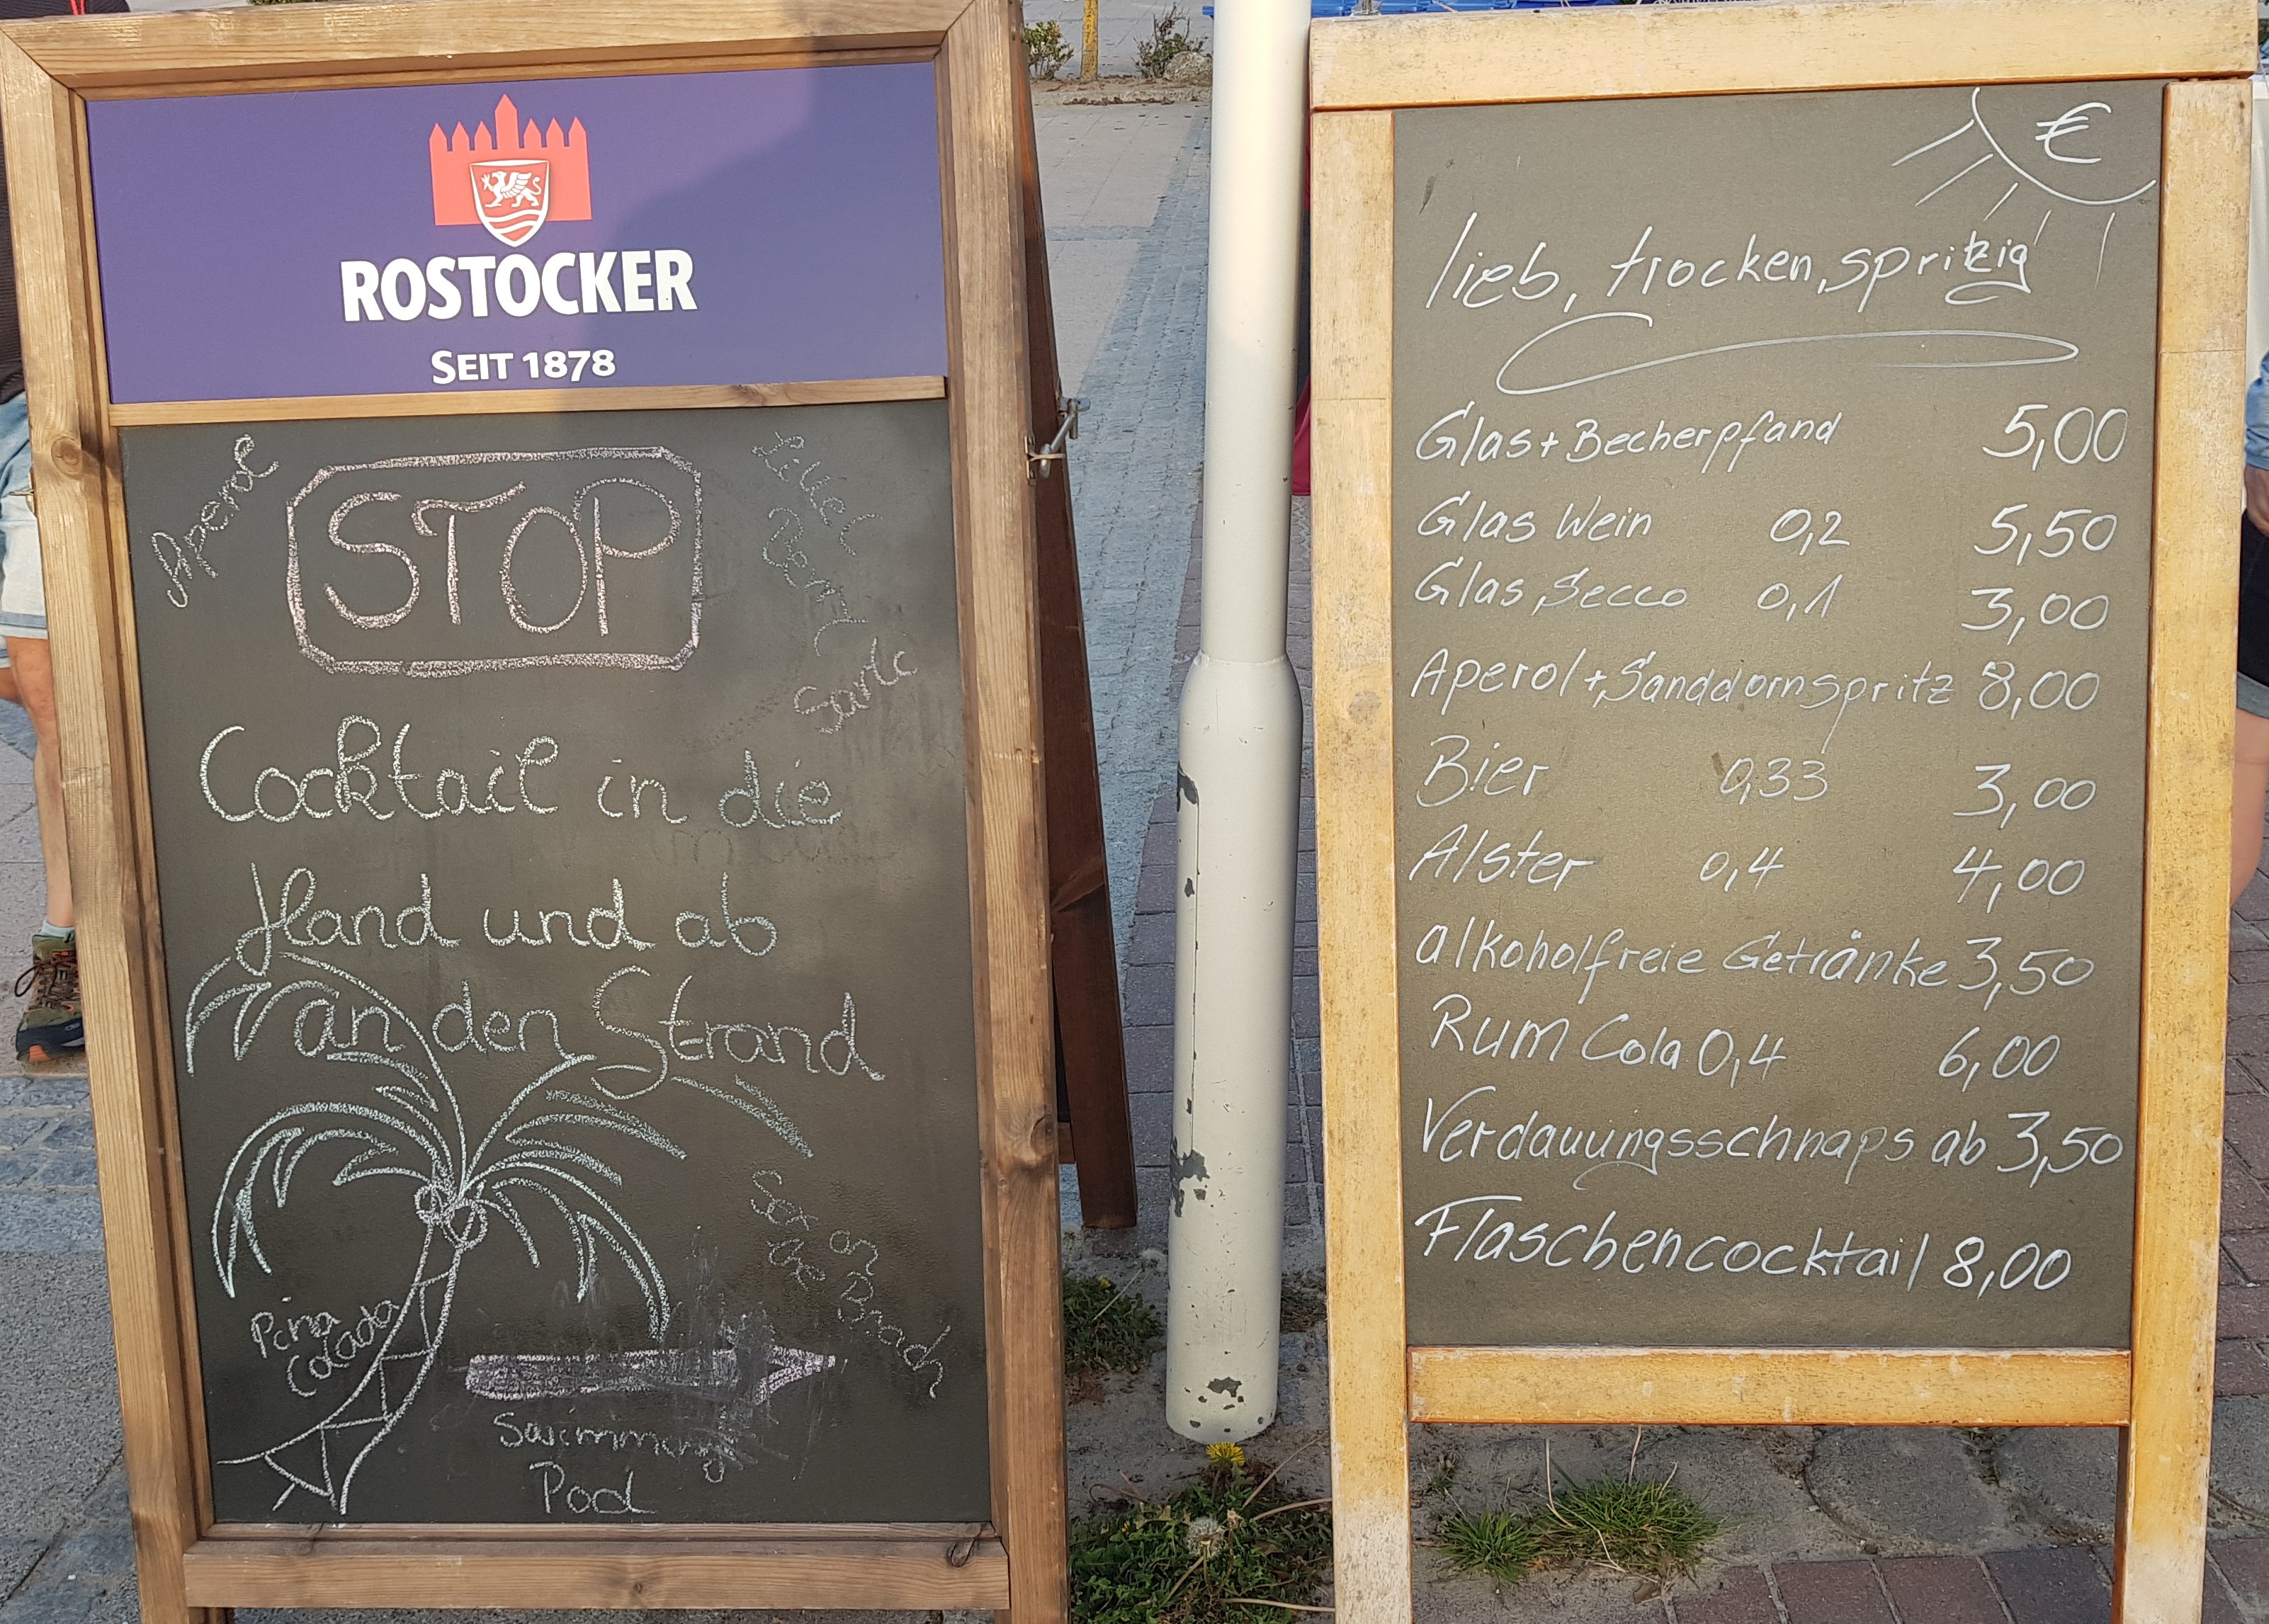 ROSTOCKER
SEIT 1878
STOP
Cocktail in die
Hand und ab
an den Strand
Pina
Colada
Sex on
Swimming
Pool
€
lieb, trocken, spritzig
Glas + Becherpfand 5,00
Glas Wein 0,2 5,50
Glas Secco 0,1 3,00
Aperol + Sanddornspritz 8,00
Bier 0,33 3,00
Alster 0,4 4,00
alkoholfreie Getränke 3,50
Rum Cola 0,4 6,00
Verdauungsschnaps ab 3,50
Flaschencocktail 8,00